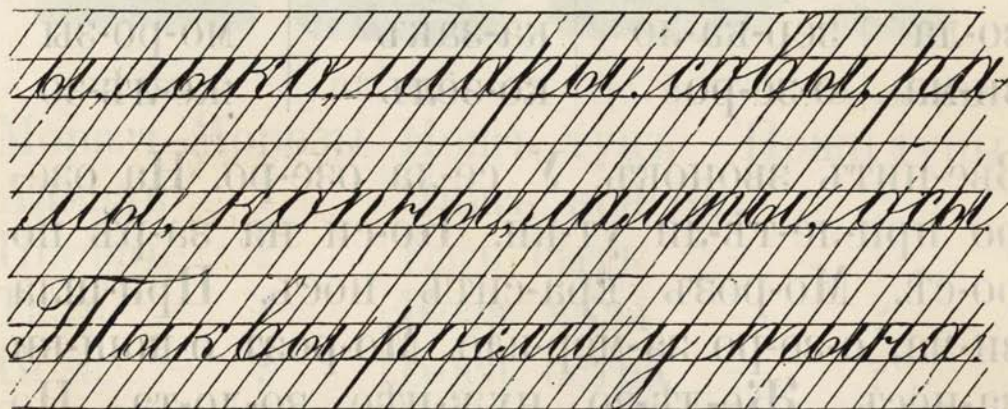 ы, лыко, шары, совы, ра-
мы, копны, лампы, осы.
Тыквы росли у тына.